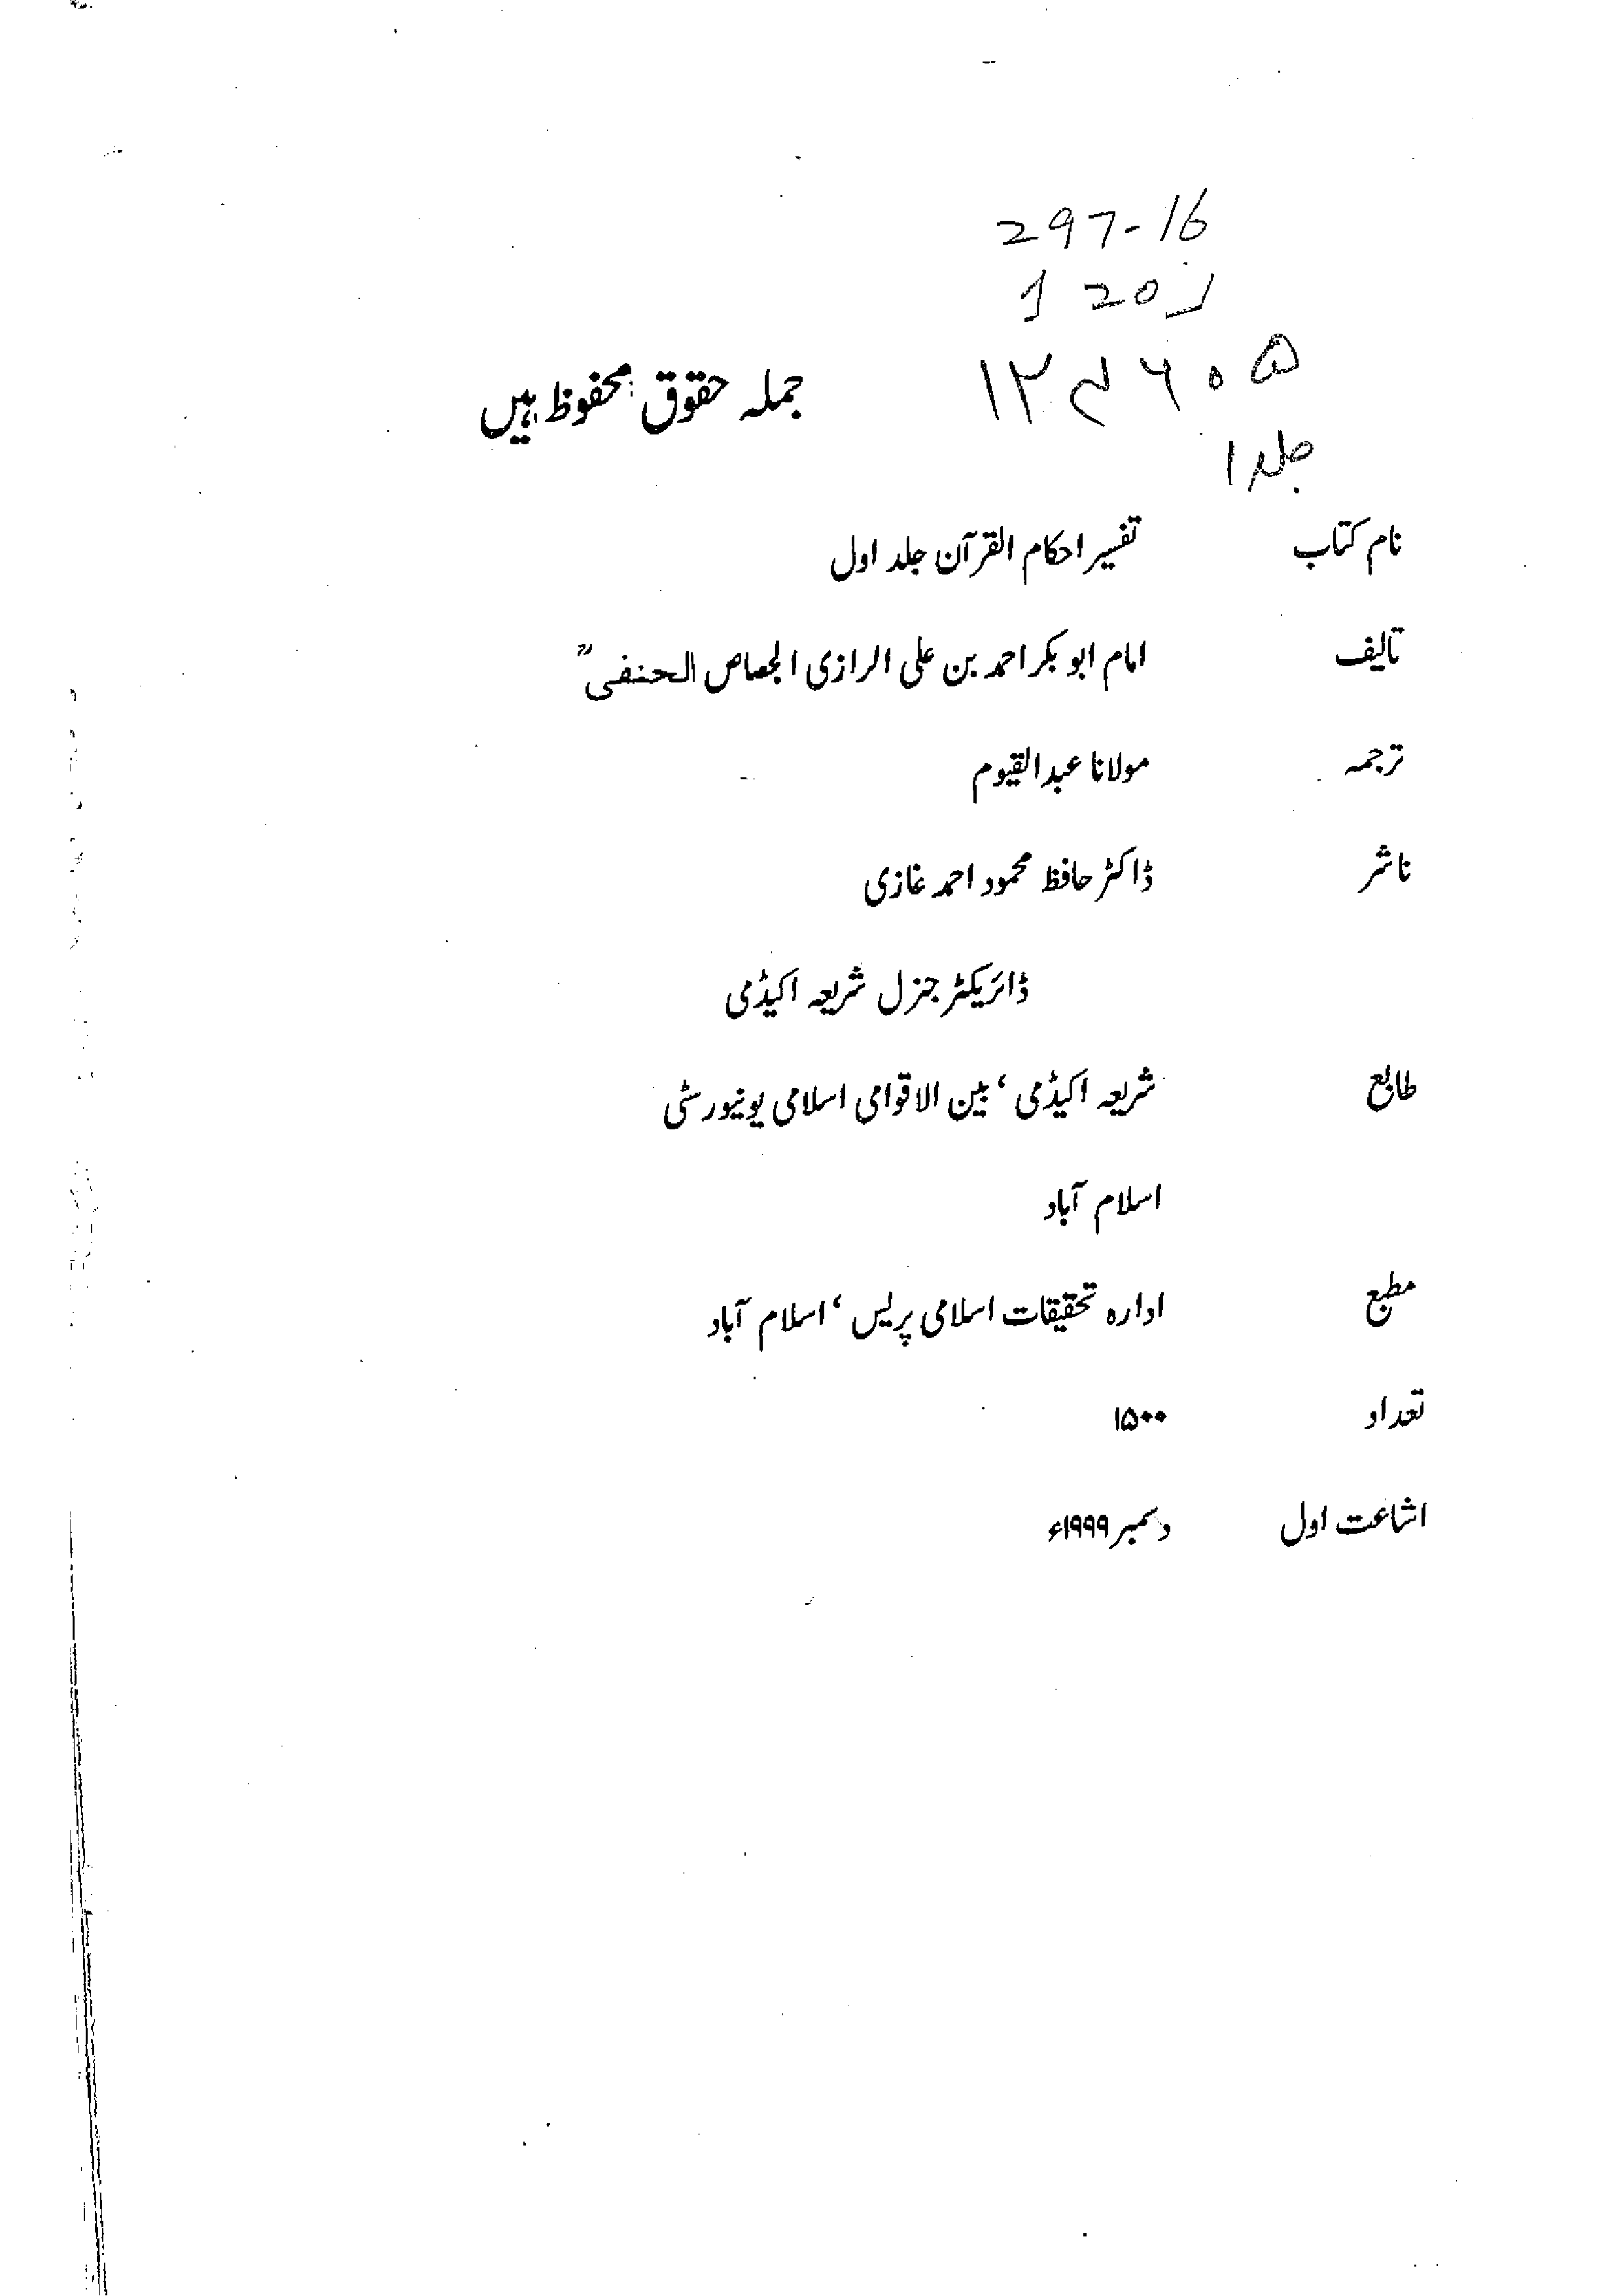 297-16
جملہ حقوق محفوظ ہیں
جلد ۱
نام کتاب تفسیر احکام القرآن جلد اول
تالیف امام ابو بکر احمد بن علی الرازی الجصاص الحنفی ؒ
ترجمہ مولانا عبدالقیوم
ناشر ڈاکٹر حافظ محمود احمد غازی
ڈائریکٹر جنرل شریعہ اکیڈمی
طابع شریعہ اکیڈمی ‘ بین الاقوامی اسلامی یونیورسٹی
اسلام آباد
مطبع ادارہ تحقیقات اسلامی پریس ‘ اسلام آباد
تعداد ۱۵۰۰
اشاعت اول دسمبر ۱۹۹۹ء